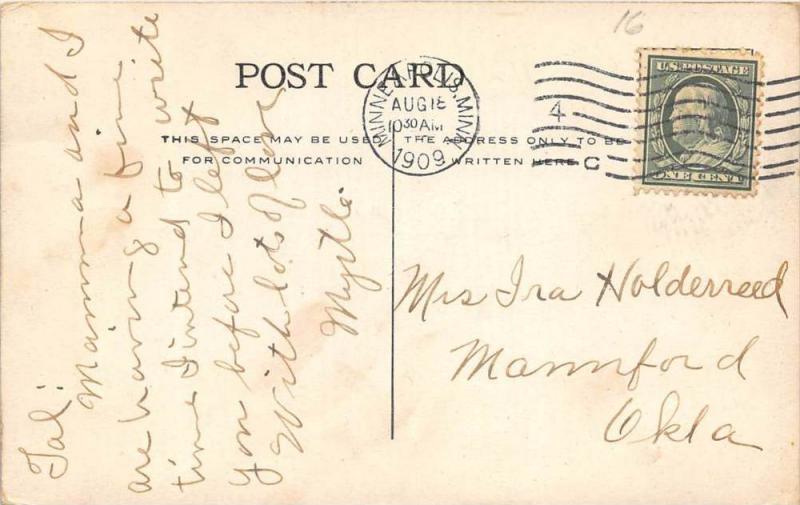 16
POST CARD
THIS SPACE MAY BE USED
FOR COMMUNICATION
THE ADDRESS ONLY TO BE
WRITTEN HERE
MINNEAPOLIS, MINN.
AUG 18
10 30 AM
1909
4
C
U.S. POSTAGE
ONE CENT
Tal:
Mamma and I
are having a fine
time I intend to write
you before I left
With lots of love
Myrtle
Mrs Ira Holderreed
Mannford
Okla